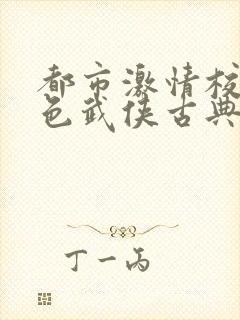 都市激情校
色武侠古典
丁一丙